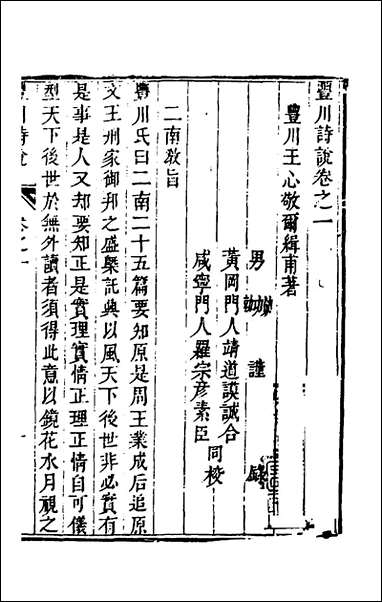 豐川詩說卷之一
豐川王心敬爾緝甫著
男 謹錄
黃岡門人靖道謨誠合
咸寧門人羅宗彥素臣
同校
二南敎旨
豐川氏曰二南二十五篇要知原是周王業成后追原
文王刑家御邦之盛槩託興以風天下後世非必實有
是事是人又却要知正是實理實情正理正情自可儀
型天下後世於無外讀者須得此意以鏡花水月視之
豐川詩說
卷之一
一